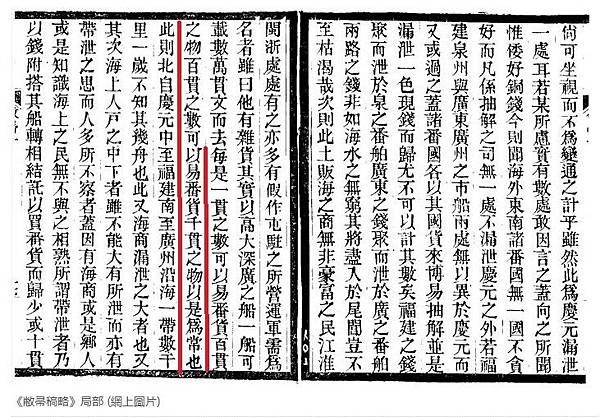 尙可坐視而不爲變通之計乎雖然此爲慶元漏泄
一處耳若某所慮實有數處敢因言之蓋向之所聞
惟倭好銅錢今則聞海外東南諸番國無一國不貪
好而凡係抽解之司無一處不漏泄慶元之外若福
建泉州與廣東廣州之市舶兩處無以異於慶元而
又或過之蓋諸番國各以其國貨來博易抽解並是
漏泄一色現錢而歸尤不可以計其數矣福建之錢
聚而泄於泉之番舶廣東之錢聚而泄於廣之番舶
兩路之錢非如海水之無窮其將盡入於尾閭豈不
至枯渴哉次則此土販海之商無非豪富之民江淮
閩浙處處有之亦多有假作屯駐之所營運軍需爲
名者雖曰他有雜貨其實以高大深廣之船一船可
載數萬貫文而去每是一貫之數可以易番貨百貫
之物百貫之數可以易番貨千貫之物以是爲常也
此則北自慶元中至福建南至廣州沿海一帶數千
里一歲不知其幾舟也此又海商漏泄之大者也又
其次海上人戶之中下者雖不能大有所泄而亦有
帶泄之患而人多所不察者蓋因有海商或是鄉人
或是知識海上之民無不與之相熟所謂帶泄者乃
以錢附搭其船轉相結託以買番貨而歸少或十貫
《敝帚稿略》局部 (網上圖片)